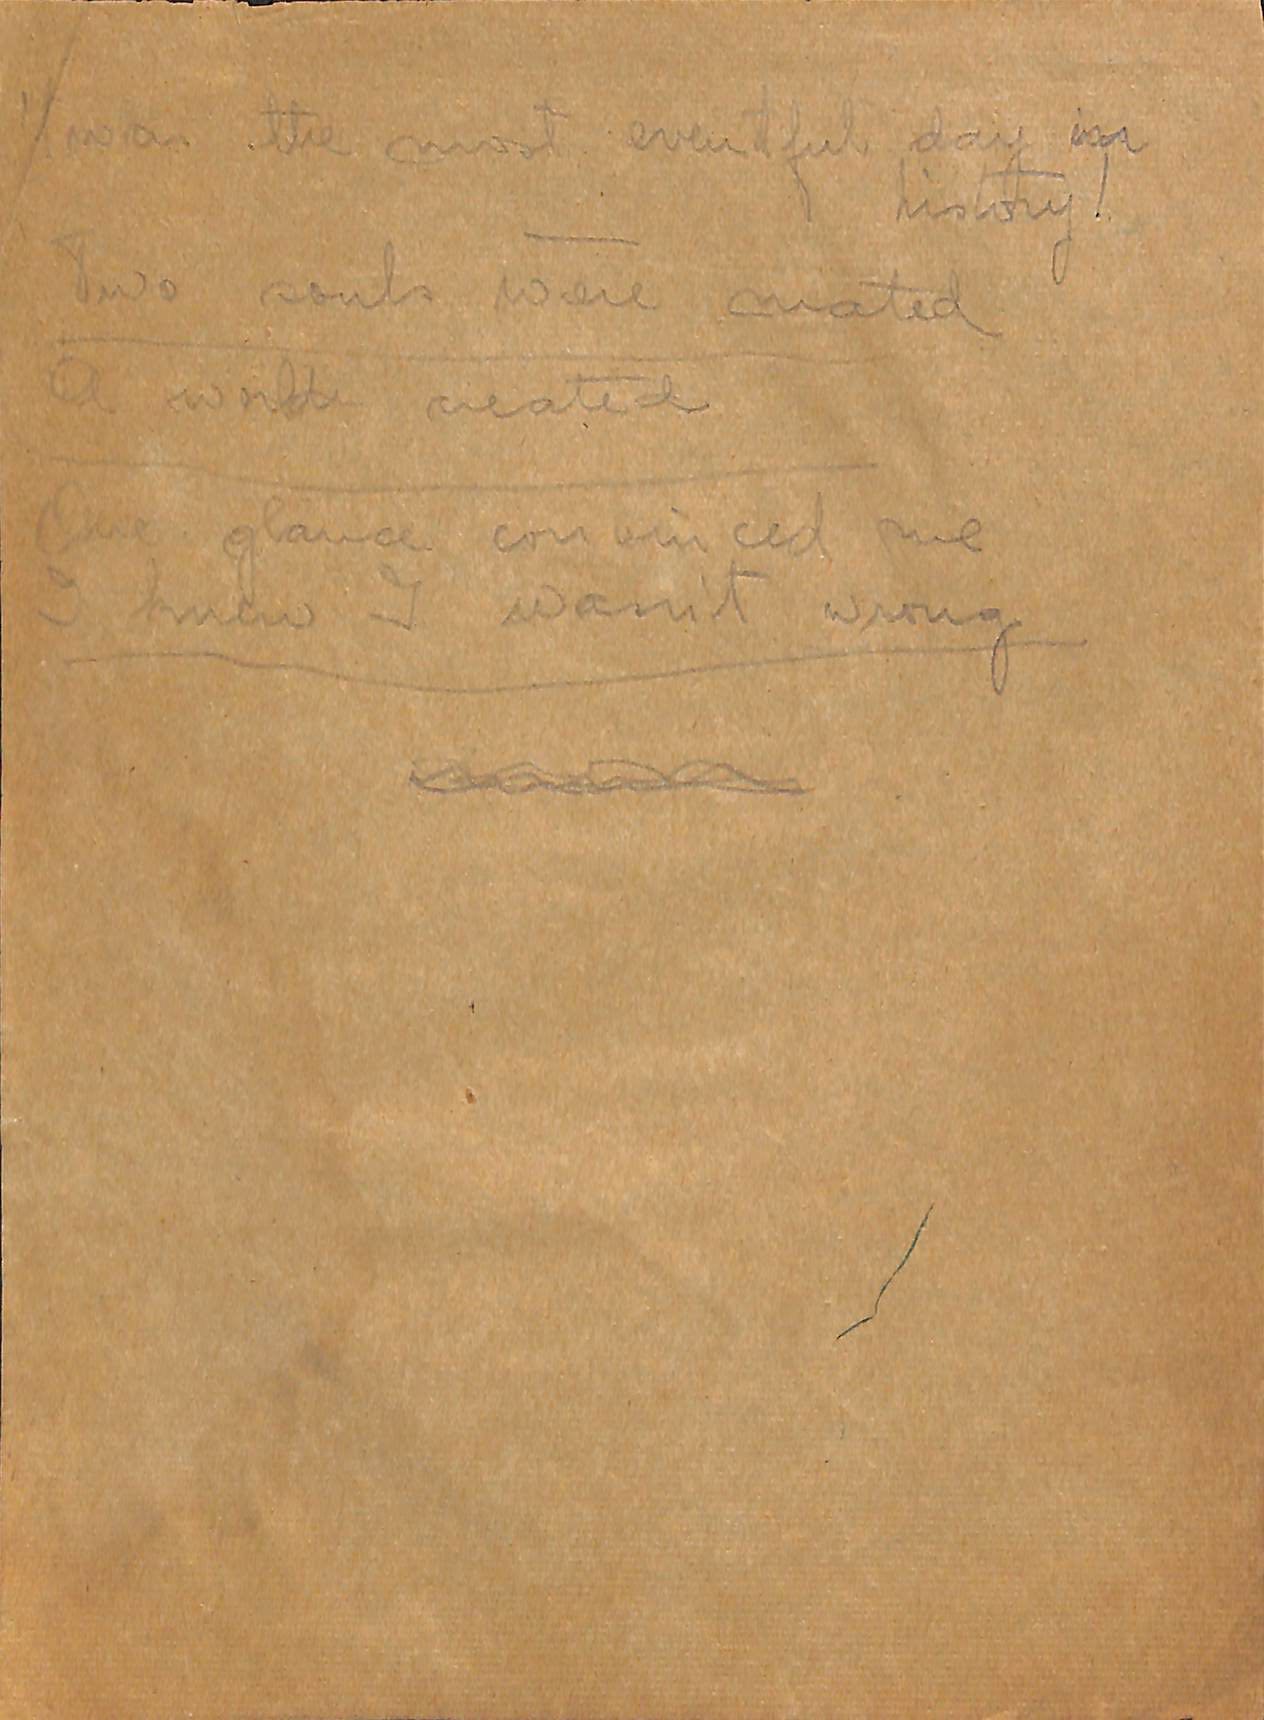 was the most eventful day in
history!
Two souls were mated
A world created
One glance convinced me
I knew I wasn't wrong